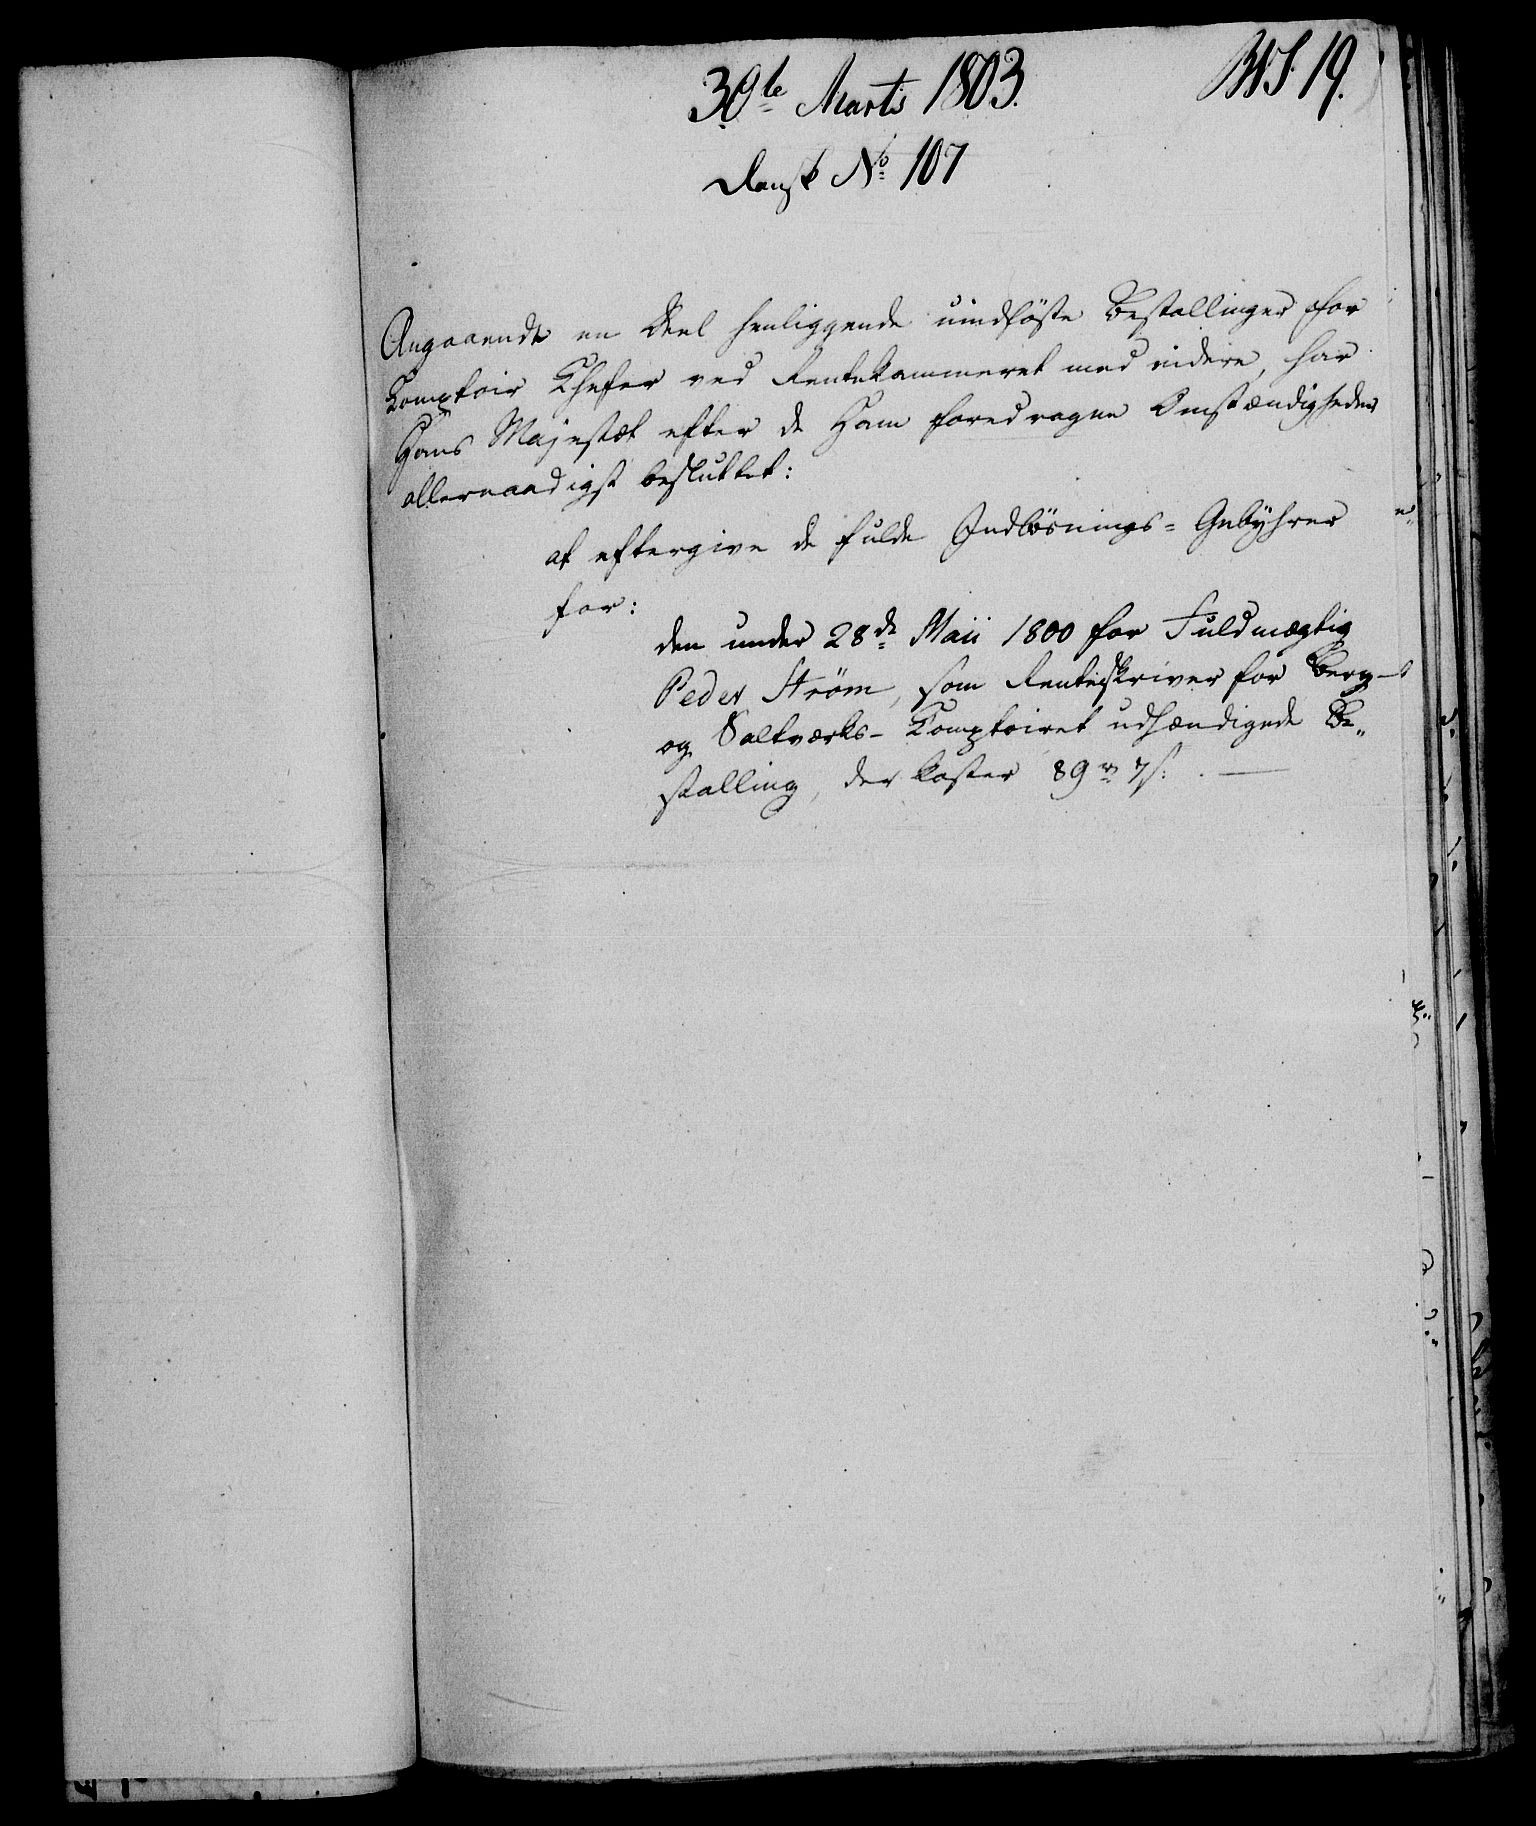 30te Marts 1803.
BWS. 19.
Dansk No 107
Angaaende en Deel henliggende uindløste Bestallinger for
Comptoir Chefer ved Rentekammeret med videre, har
Hans Majestæt efter de Ham foredragne Omstændigheder
allernaadigst besluttet:
at eftergive de fulde Indløsnings-Gebyhrer
for:
den under 28de Maii 1800 for Fuldmægtig
Peder Strøm, som Renteskriver for Berg-
og Saltværks-Comptoiret udfærdigede Be-
stalling, der koster 89 rd 7 s: